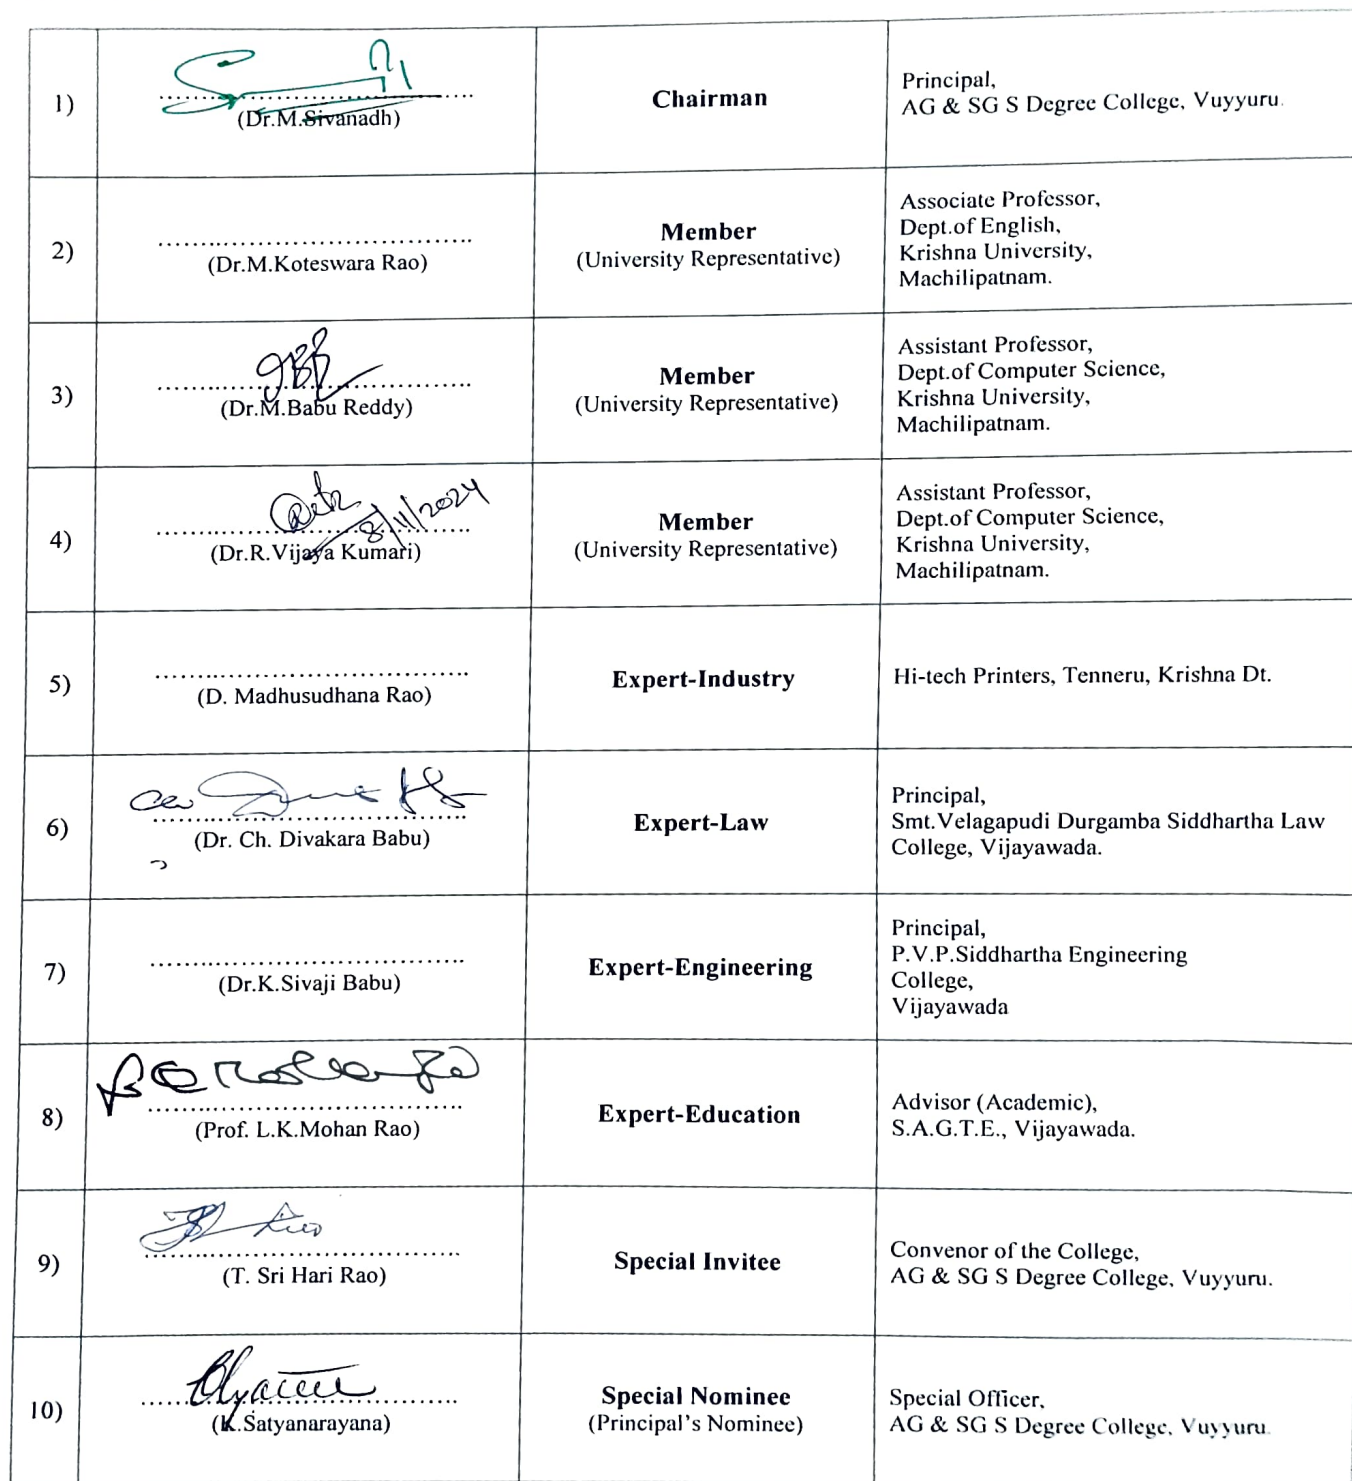 1)
(Dr.M.Sivanadh)
Chairman
Principal,
AG & SG S Degree College, Vuyyuru.
2)
(Dr.M.Koteswara Rao)
Member
(University Representative)
Associate Professor,
Dept.of English,
Krishna University,
Machilipatnam.
3)
(Dr.M.Babu Reddy)
Member
(University Representative)
Assistant Professor,
Dept.of Computer Science,
Krishna University,
Machilipatnam.
4)
8/11/2024
(Dr.R.Vijaya Kumari)
Member
(University Representative)
Assistant Professor,
Dept.of Computer Science,
Krishna University,
Machilipatnam.
5)
(D. Madhusudhana Rao)
Expert-Industry
Hi-tech Printers, Tenneru, Krishna Dt.
6)
(Dr. Ch. Divakara Babu)
Expert-Law
Principal,
Smt.Velagapudi Durgamba Siddhartha Law
College, Vijayawada.
7)
(Dr.K.Sivaji Babu)
Expert-Engineering
Principal,
P.V.P.Siddhartha Engineering
College,
Vijayawada
8)
(Prof. L.K.Mohan Rao)
Expert-Education
Advisor (Academic),
S.A.G.T.E., Vijayawada.
9)
(T. Sri Hari Rao)
Special Invitee
Convenor of the College,
AG & SG S Degree College, Vuyyuru.
10)
(K.Satyanarayana)
Special Nominee
(Principal's Nominee)
Special Officer,
AG & SG S Degree College, Vuyyuru.